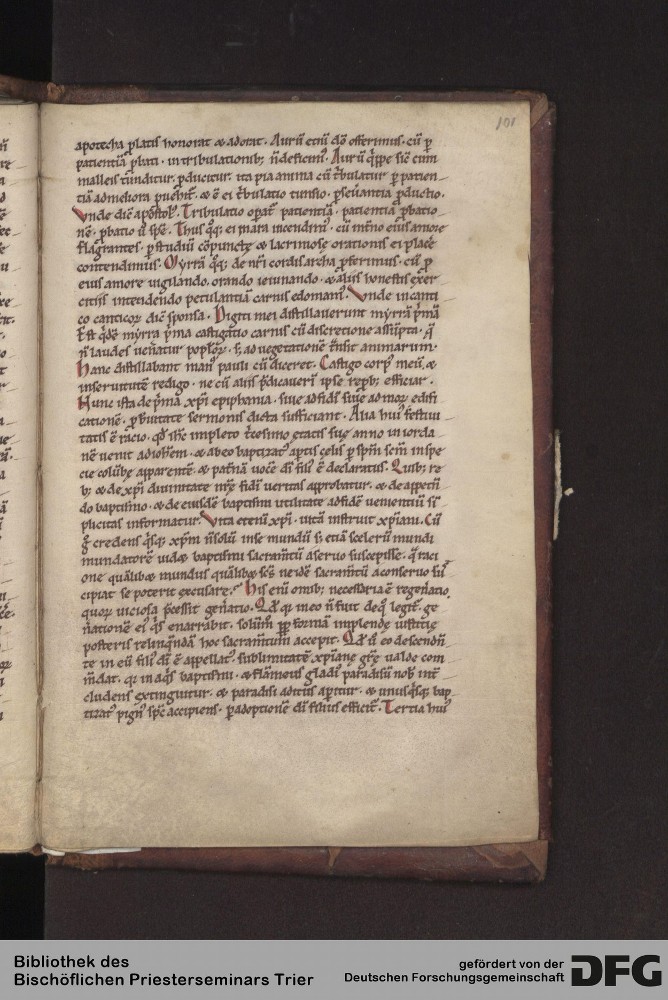 101
apotecha platis honorat & adorat. Aurū etiā dō offerimus. cū p
patientiā plati. in tribulationib; ñ deficim'. Aurū q̄ppe sic̄ cum
malleis tunditur, pducitur. ita pia anima cū t̄bulatur p patien-
tiā ad meliora puehit̄. & ē ei t̄bulatio tunsio. pseuantia pductio.
Vnde dic̄ apostol'. Tribulatio opat̄ patientiā. patientia pbatio
nē. pbatio ū spē. Thus q̄q; ei mara incendim'. cū int̄no ei'
flagrantes. p studiū cōpunctę & lacrimose orationis ei place
contendimus. Myrrā q̄q; de nr̄i cordis archa pferimus. cū p
eius amore uigilando. orando ieiunando. & aliis honestis exer
citiis intendendo petulantiā carnis edomam'. Vnde in canti
co canticoꝝ dic̄ sponsa. Digiti mei distillauerunt myrrā p̄mā
Est q̄dē myrra p̄ma castigatio carnis cū discretione assūpta. q̄
ñ laudes uenatur poploꝝ. s; ad uegetationē t̄nsit animarum.
Hanc distillabant man' pauli cū diceret. Castigo corp' meū. &
in seruitutē redigo. ne cū aliis p̄dicauerī ipse repb; efficiar.
Hunc ista de p̄ma xp̄i epiphania. siue ad fidē siue ad moꝝ edifi
cationē. p breuitate sermonis dicta sufficiant. Alia hui' festiui
tatis ē racio. qd̄ ih̄c impleto t̄cesimo etatis sue anno in iorda-
nē uenit ad ioh̄em. & ab eo baptizat' aptis celis p sp̄m sc̄m in spe
cie colūbe apparentē. & pat̄na uoce dī fili' ē declaratus. Quib; re
b; & de xp̄i diuinitate nrę fidī ueritas approbatur. & de appetū
do baptismo. & de eiusdē baptismi utilitate ad fidē uenientiū si
plicitas informatur. Vita etenī xp̄i. uitā instruit xp̄iani. Cū
g̊ credens q̄sq; xp̄m ñ solū in se mundū s; etiā sceleꝝ mundi
mundatorē uidet baptismi sacram̄tū a seruo suscepisse. q̄ raci
one quālib& mundus quālib& sc̄s ne idē sacram̄tū a conseruo sus
cipiat se poterit excusare. His enī omib; necessaria ē regenatio.
quoꝝ uiciosa p̄cessit genatio. Qd̄ q̄ in eo ñ fuit de q̊ legit̄. ge
nationē ei' q̄s enarrabit. solūm pp̄ formā implende iusticie
posteris relinq̄ndā hoc sacram̄tum accepit. Qd̄ ū eo descendn̄
te in eū fili' dī ē appellat'. sublimitatē xp̄iane gr̄e ualde com
mdat. q̄ in aq̄s baptismi. & flāmeus gladi' paradisū nob̄ int̄
cludens extinguitur. & paradisi aditus aperitur. & unusq̄sq; bap
tizat' pign' sp̄c accipiens. p adoptionē dī filius efficit̄. Tertia hui'
Bibliothek des
Bischöflichen Priesterseminars Trier
gefördert von der
Deutschen Forschungsgemeinschaft
DFG